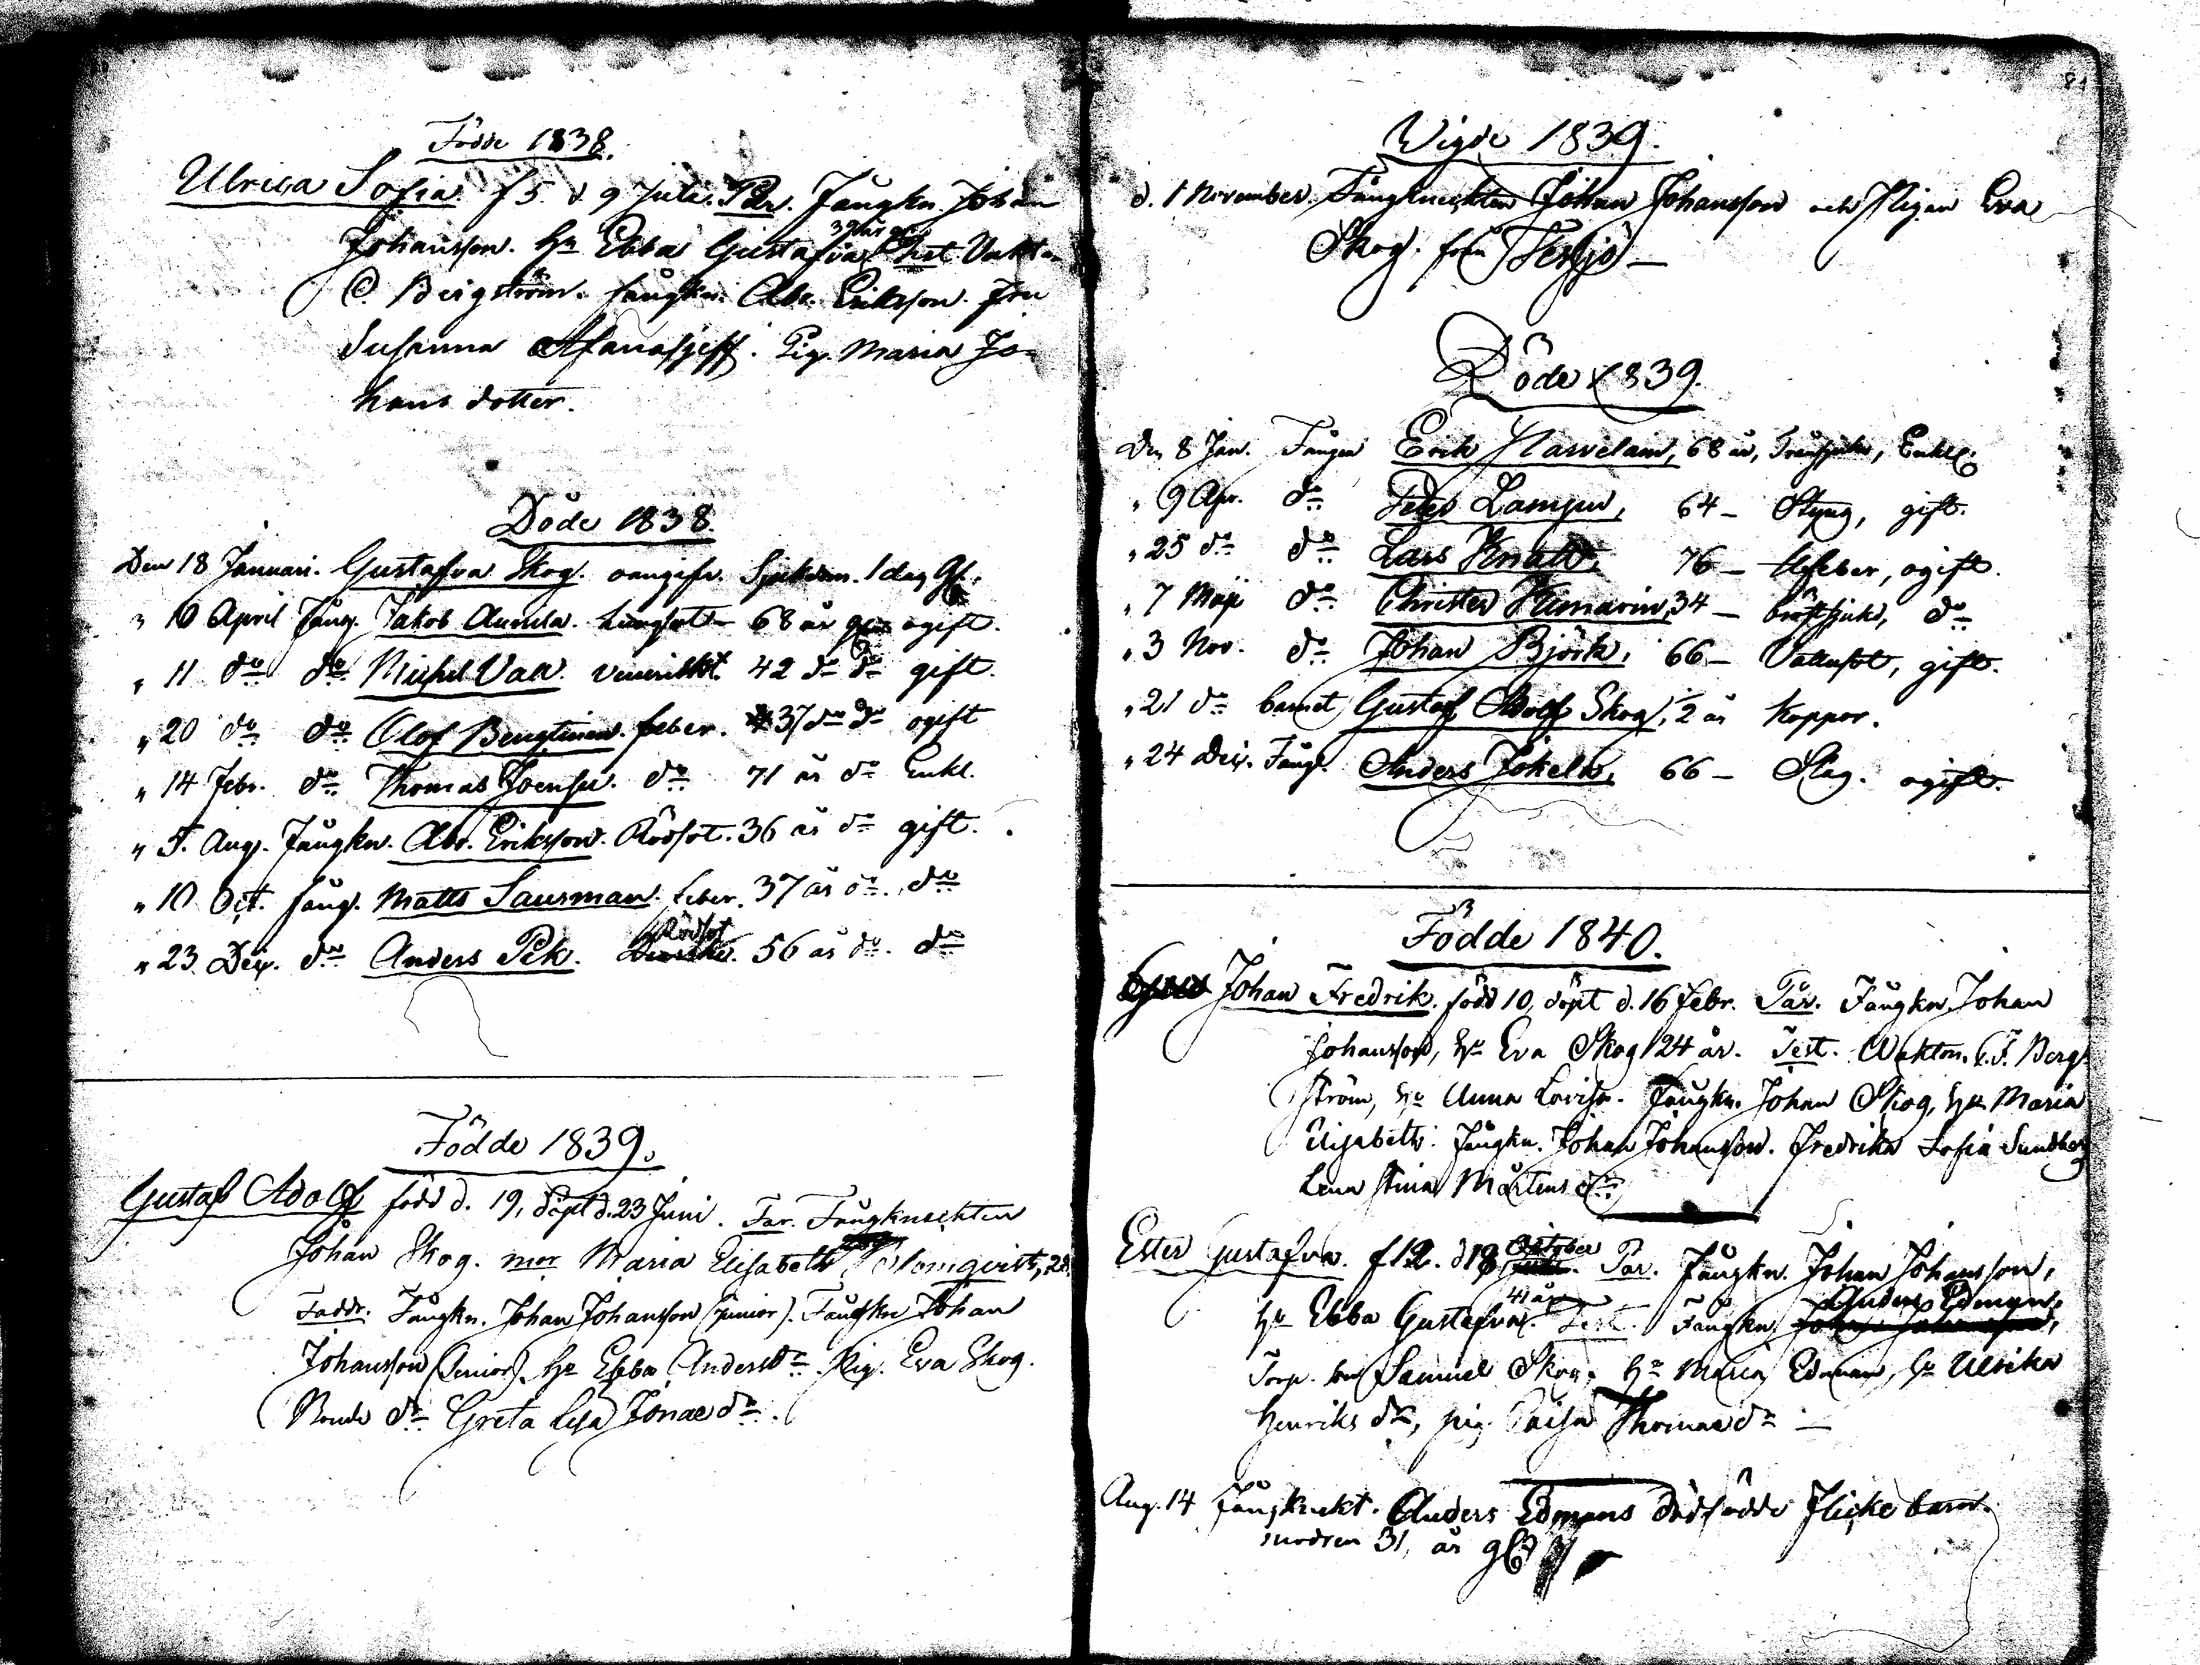 Födde 1838.
Ulrica Sofia. f 5. d 9 Juli. Par. Fångkn. Johan
39 år gl.
Johansson. Hu Ebba Gustafva Test. Vakt.
C. Bergström. Fångkn. Abr. Eriksson. Jon
Susanna Afanasjeff. Pig. Maria Jo-
hans dotter.
Döde 1838.
Den 18 Januari. Gustafva Skog. oangifv. Sjukdom. 1 dag gl.
" 10 April Fång. Jakob Aumla. Lungsot 68 år ogift.
" 11 do do Michel Vall. Venerisk. 42 do do gift.
" 20 do do Olof Bengtinen. feber. 37 do do ogift
" 14 Febr. do Thomas Joensu. do 71 år do Enkl.
" 5. Aug. Fångkn. Abr. Eriksson. Rödsot. 36 år do gift.
" 10 Oct. Fång. Matts Sausman. feber. 37 år do. do
Rödsot
" 23 Dec. do Anders Pek. 56 år do. do
Födde 1839.
Gustaf Adolf född d. 19, döpt d. 23 Juni. Far. Fångknechten
Johan Skog. mor Maria Elisabeth Holmqvist, 28
Faddr. Fångkn. Johan Johansson (junior). Fångkn Johan
Johansson (Senior). Hu Ebba Andersdr. Pig. Eva Skog.
do Greta Lisa Jonaedr.
81
Wigde 1839.
d. 1 November. Fångknechten Johan Johansson och Pigan Eva
Skog. från
Döde 1839.
Den 8 Jan. Fången Erik 68 år, Enkl.
" 9 Apr. do Peter Lampu, 64 – Styng, gift.
" 25 do do Lars Knalt, 76 – feber, ogift.
" 7 Maji do Christer Kumarin, 34 – bröstsjuk, do
" 3 Nov. do Johan Björk, 66 – Vattusot, gift.
" 21 do barnet Gustaf Adolf Skog, ½ år Koppor.
" 24 Dec. Fång. Anders Jokela, 66 – Slag. ogift.
Födde 1840.
Johan Fredrik. född 10, döpt d. 16 Febr. Par. Fångkn. Johan
Johansson, Hu Eva Skog 24 år. Test. Waktm. C. F. Berg-
ström, Hu Anna Lovisa. Fångkn. Johan Skog, Hu Maria
Elisabeth. Fångkn. Johan Johansson. Fredrika Sofia Sundberg
Lena Stina Mårtens dr
October
Ester Gustafva. f 12. d 18 Par. Fångkn. Johan Johansson,
41 år
Anders Edman,
Hu Ebba Gustafva. Test. Fångkn.
Torp. son Samuel Skog, Hu Maria Edman, Hu Ulrika
Henriks dr, pig. Caisa Thomas dr –
Aug. 14 Fångknekt. Anders Edmans dödfödde flicke barn.
modren 31, år gl